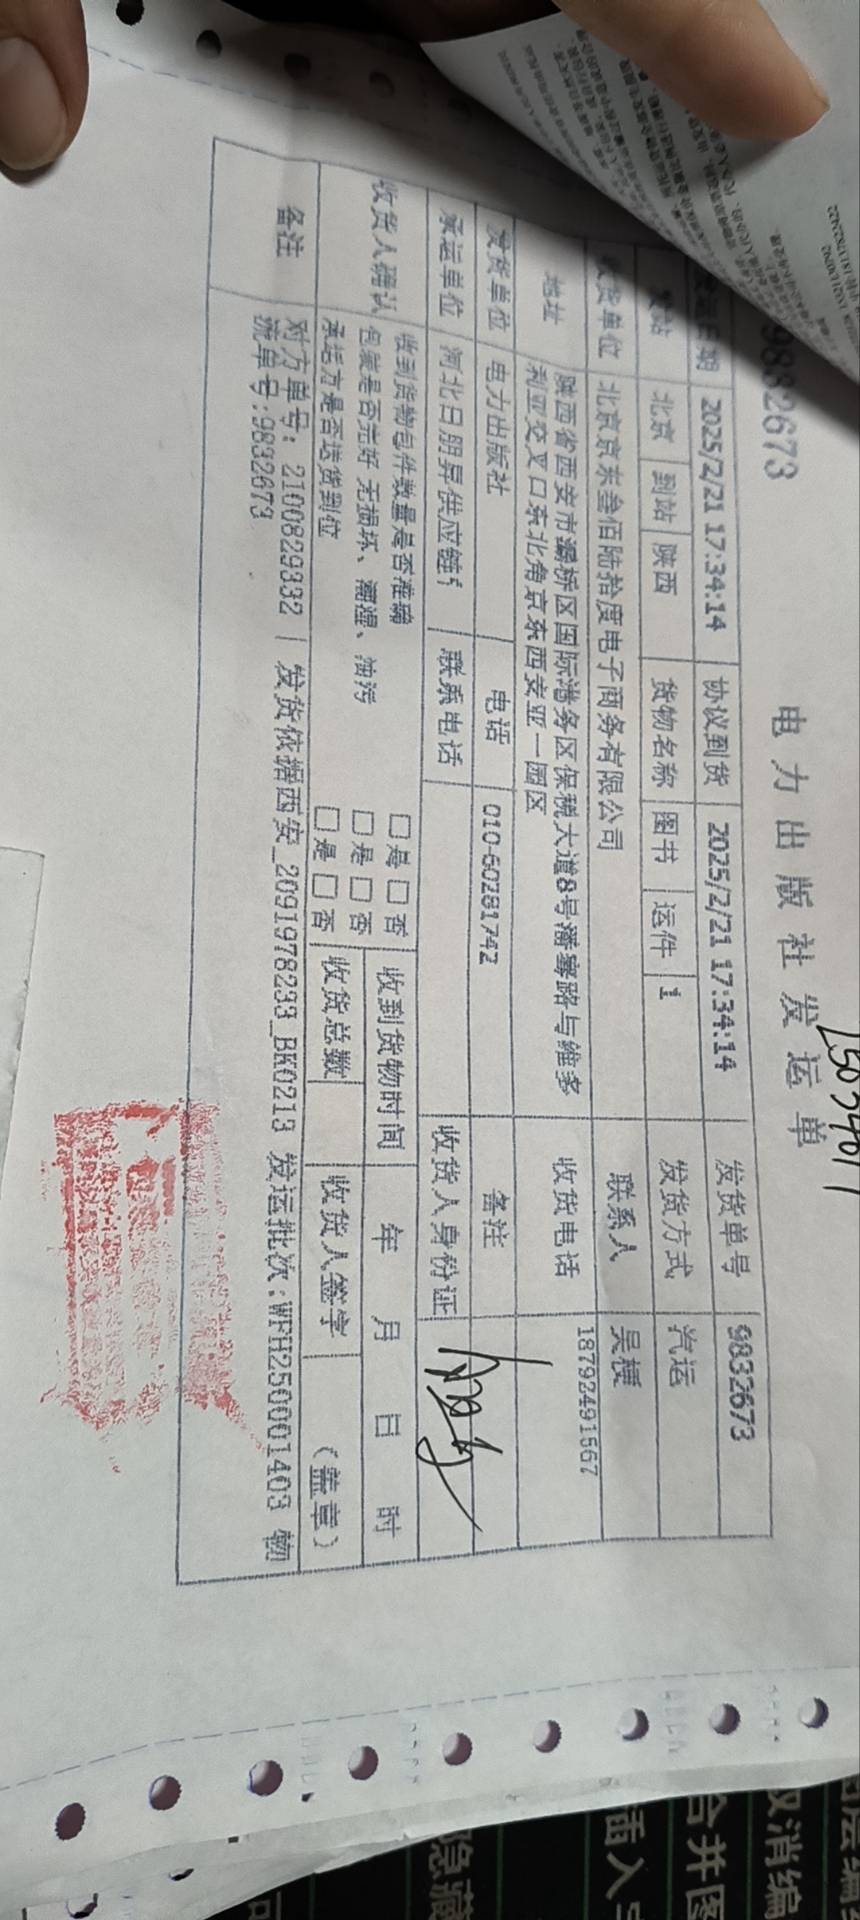 9832673
电力出版社发运单
1503401
发运日期 2025/2/21 17:34:14 协议到货 2025/2/21 17:34:14 发货单号 9832673
发站 北京 到站 陕西 货物名称 图书 运件 1 发货方式 汽运
收货单位 北京京东叁佰陆拾度电子商务有限公司 联系人 吴梗
地址 陕西省西安市灞桥区国际港务区保税大道8号潘骞路与维多
利亚交叉口东北角京东西安亚一园区 收货电话 18792491567
发货单位 电力出版社 电话 010-60281742 备注
承运单位 河北日朋昇供应链 联系电话 收货人身份证
收货人确认 收到货物包件数量是否准确 □是 □否 收到货物时间 年 月 日 时
包装是否完好 无损坏、潮湿、油污 □是 □否
承运方是否送货到位 □是 □否 收货总数 收货人签字 (盖章)
备注 对方单号: 2100829332 | 发货依据西安_2091978233_BK0213 发运批次:WFH250001403 物
流单号:9832673
取消编
合并图
插入
隐藏